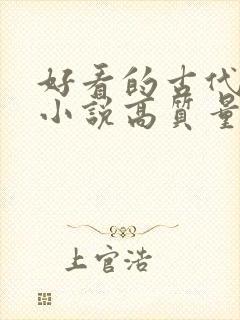 好看的古代
小说高质量
上官浩